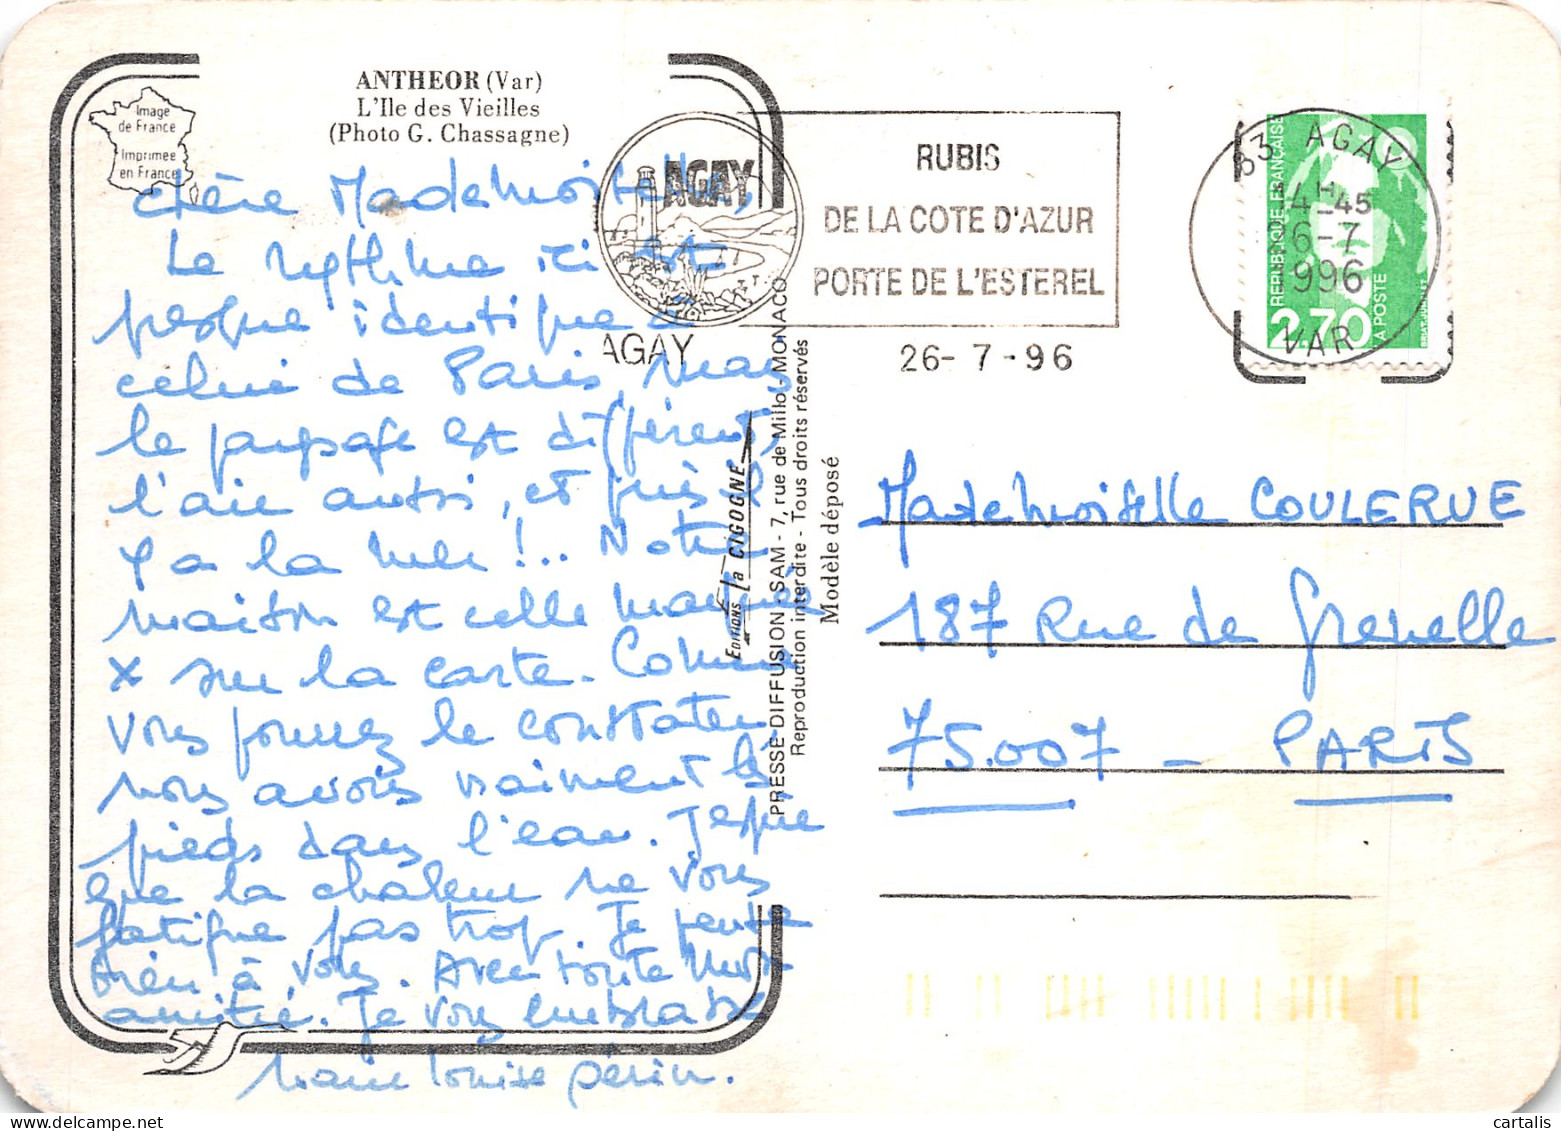 ANTHEOR (Var)
L'Ile des Vieilles
(Photo G. Chassagne)
Image
de France
Imprimée
en France
chère Mademoiselle,
Le rythme ici est
presque identique à
celui de Paris, mais
le paysage est différent,
l'air aussi, et puis il
y a la mer !.. Notre
maison est celle marquée
x sur la carte. Comme
vous pouvez le constater
nous avons vraiment les
pieds dans l'eau. J'espère
que la chaleur ne vous
fatigue pas trop. Je pense
bien à vous. Avec toute mon
amitié. Je vous embrasse
Marie Louise Périn.
AGAY
RUBIS
DE LA COTE D'AZUR
PORTE DE L'ESTEREL
AGAY
26-7-96
83 AGAY
14 H 45
26-7
1996
VAR
REPUBLIQUE FRANÇAISE
2,70
LA POSTE
Editions la CIGOGNE
PRESSE-DIFFUSION SAM - 7, rue de Millo - MONACO
Reproduction interdite - Tous droits réservés
Modèle déposé
Mademoiselle COULERUE
187 Rue de Grenelle
75.007 - PARIS
cartalis